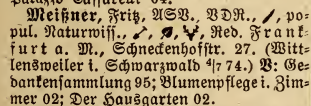 Meißner, Fritz, ASV. VDR., po-
pul. Naturwiss., Red. Frank-
furt a. M., Schneckenhofstr. 27. (Witt-
lensweiler i. Schwarzwald 4/7 74.) V: Ge-
dankensammlung 95; Blumenpflege i. Zim-
mer 02; Der Hausgarten 02.